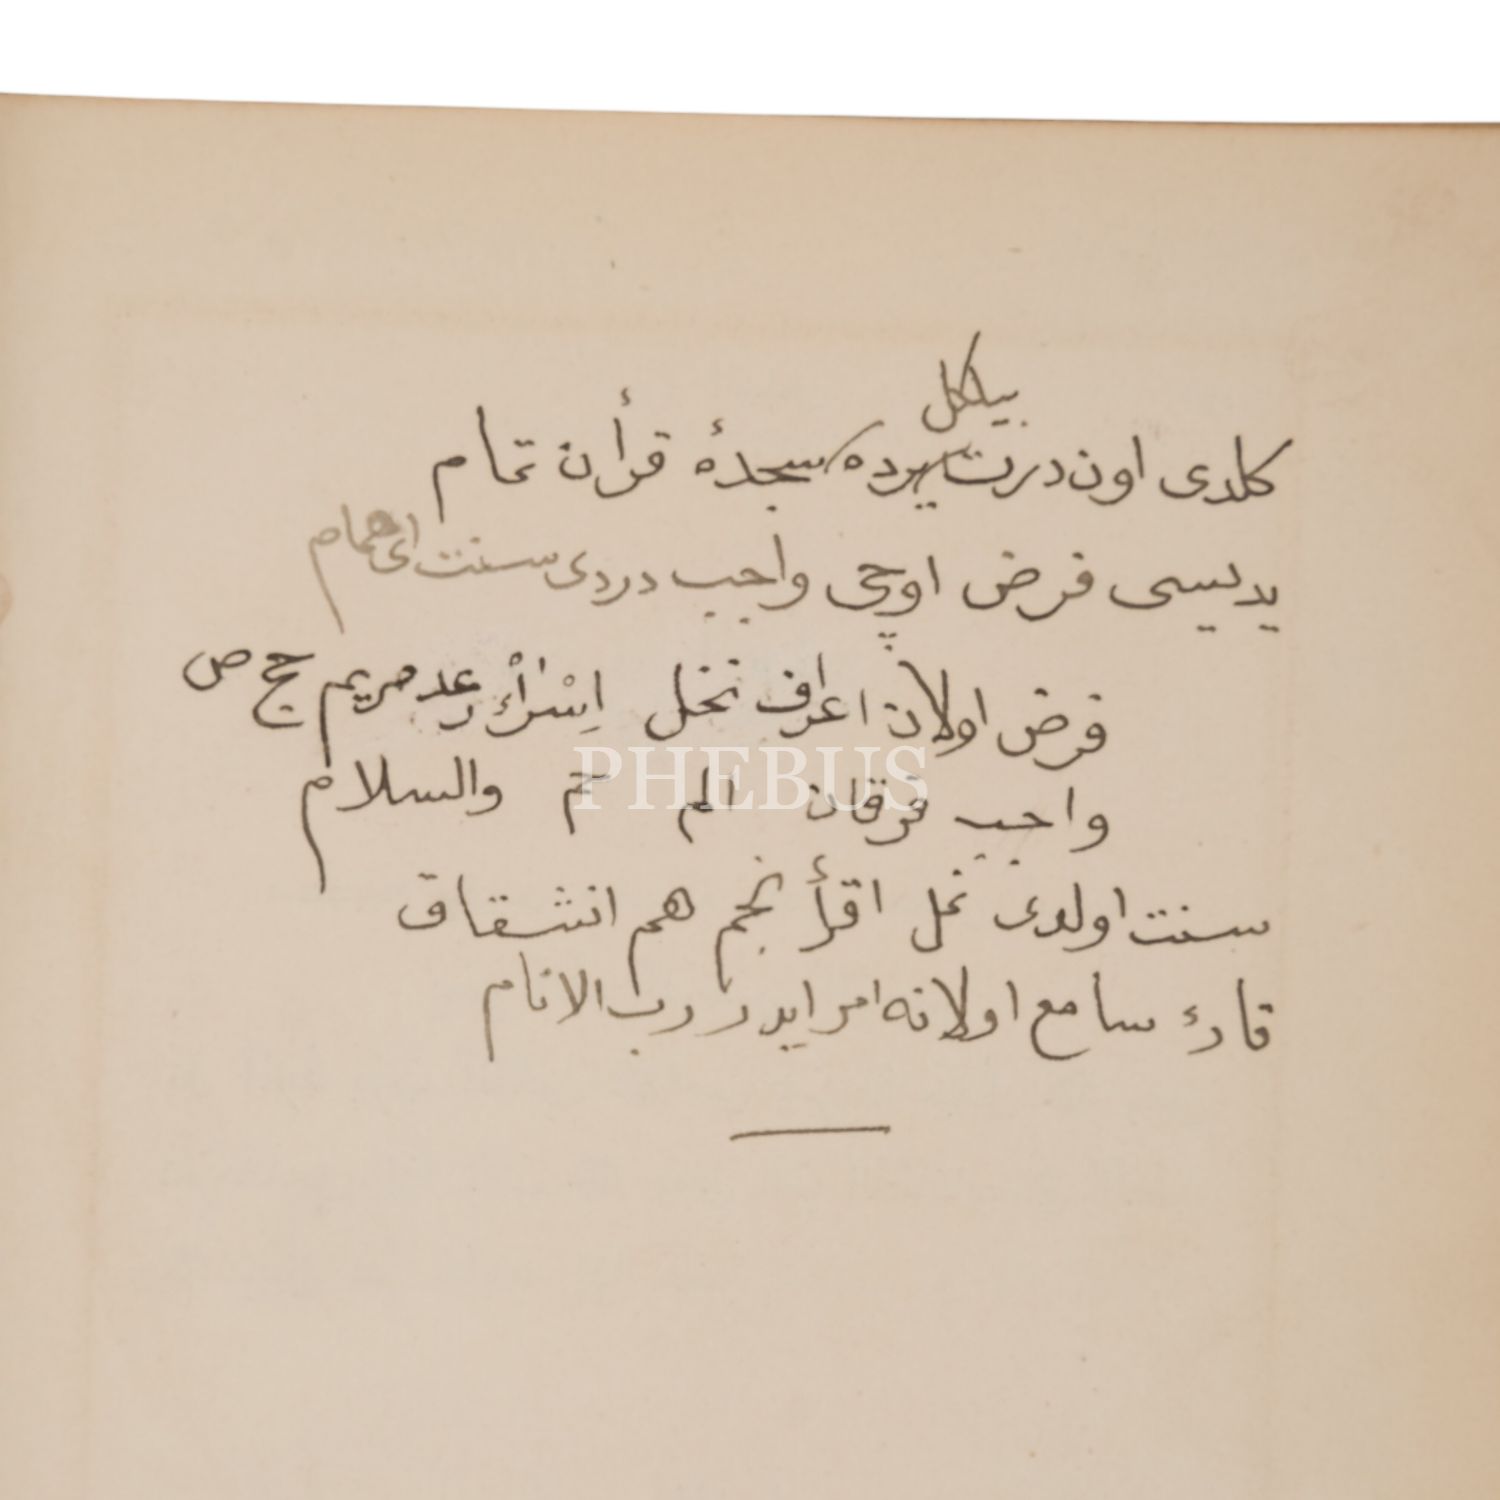 بیلکل
کلدی اون درت یرده سجدۀ قرأن تمام
یدیسی فرض اوچی واجب دردی سنت ای همام
فرض اولان اعراف نحل اسرأ رعد مریم حج ص
واجب فرقان الم حم والسلام
سنت اولدی نمل اقرأ نجم هم انشقاق
قارئ سامع اولانه امر ایدر رب الانام
PHEBUS